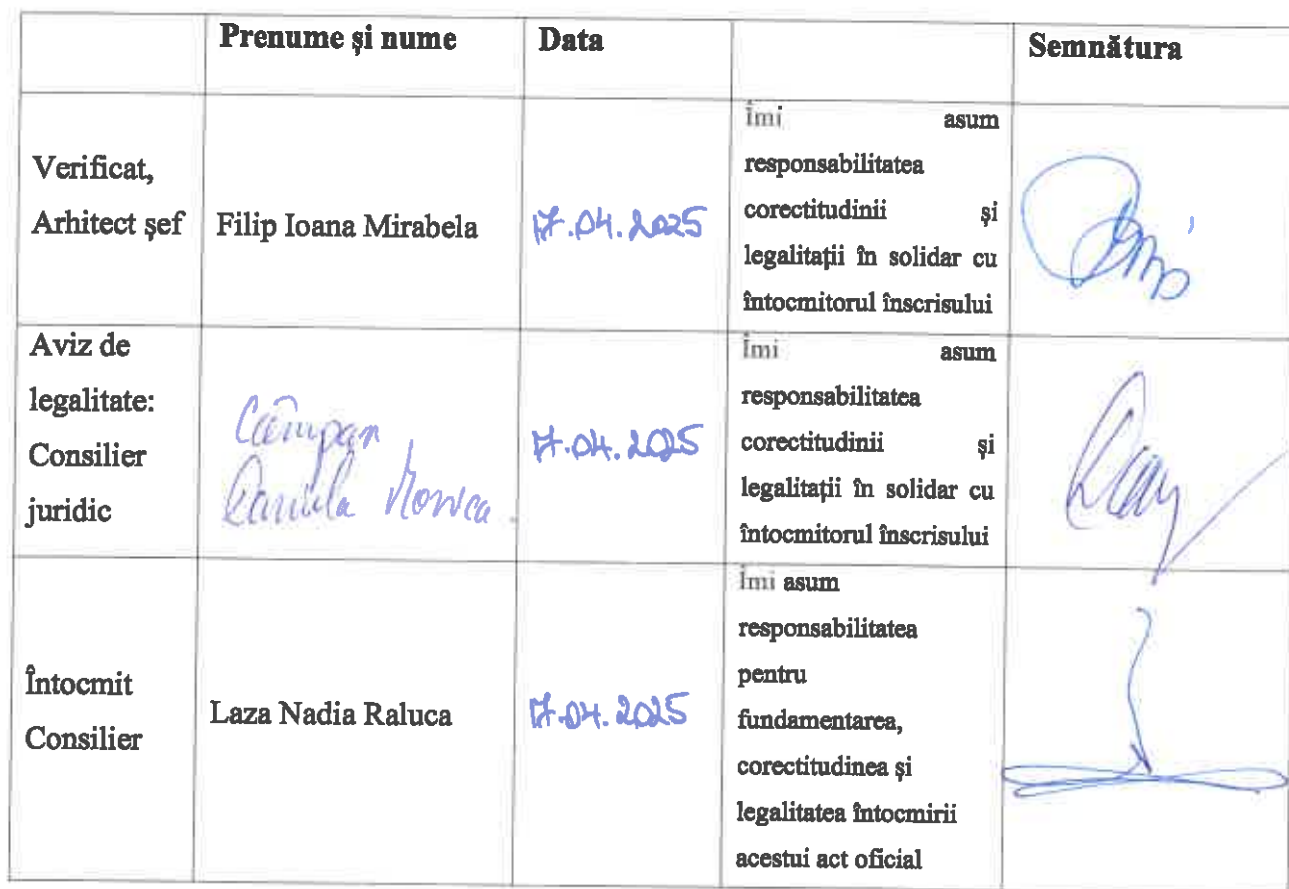 Prenume și nume
Data
Semnătura
Verificat,
Arhitect șef
Filip Ioana Mirabela
17.04.2025
Îmi asum
responsabilitatea
corectitudinii și
legalitații în solidar cu
întocmitorul înscrisului
Aviz de
legalitate:
Consilier
juridic
Câmpan
Daniela Monica
17.04.2025
Îmi asum
responsabilitatea
corectitudinii și
legalitații în solidar cu
întocmitorul înscrisului
Întocmit
Consilier
Laza Nadia Raluca
17.04.2025
Îmi asum
responsabilitatea
pentru
fundamentarea,
corectitudinea și
legalitatea întocmirii
acestui act oficial